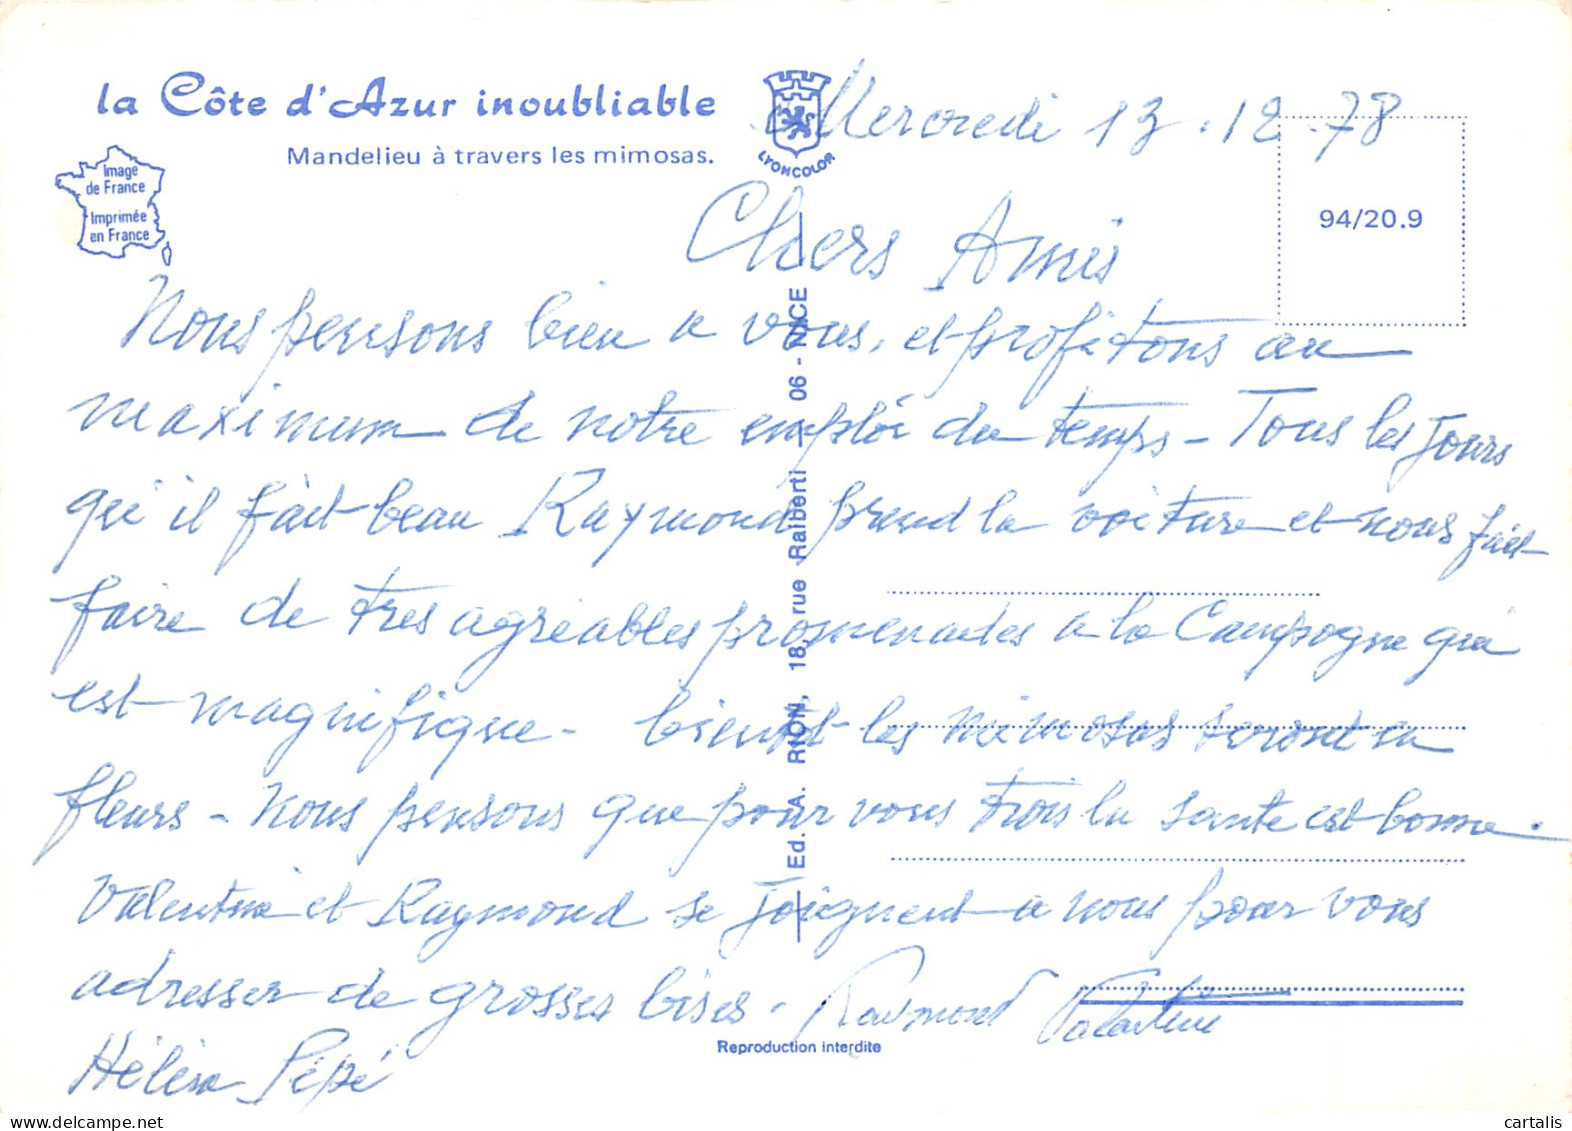 la Côte d'Azur inoubliable
Mandelieu à travers les mimosas.
Image
de France
Imprimée
en France
LYONCOLOR
Mercredi 13.12.78
94/20.9
Chers Amis
Nous pensons bien a vous, et profitons au
maximum de notre emploi du temps - Tous les jours
qu'il fait beau Raymond prend la voiture et nous fait
faire de tres agreables promenades a la Campagne qui
est magnifique - bientot les mimosas seront en
fleurs - nous pensons que pour vous trois la sante est bonne.
Valentine et Raymond se joignent a nous pour vous
adresser de grosses bises - Raymond Valentine
Hélène Pépé
Ed. A. RION, 18, rue Raiberti - 06 - NICE
Reproduction interdite
cartalis